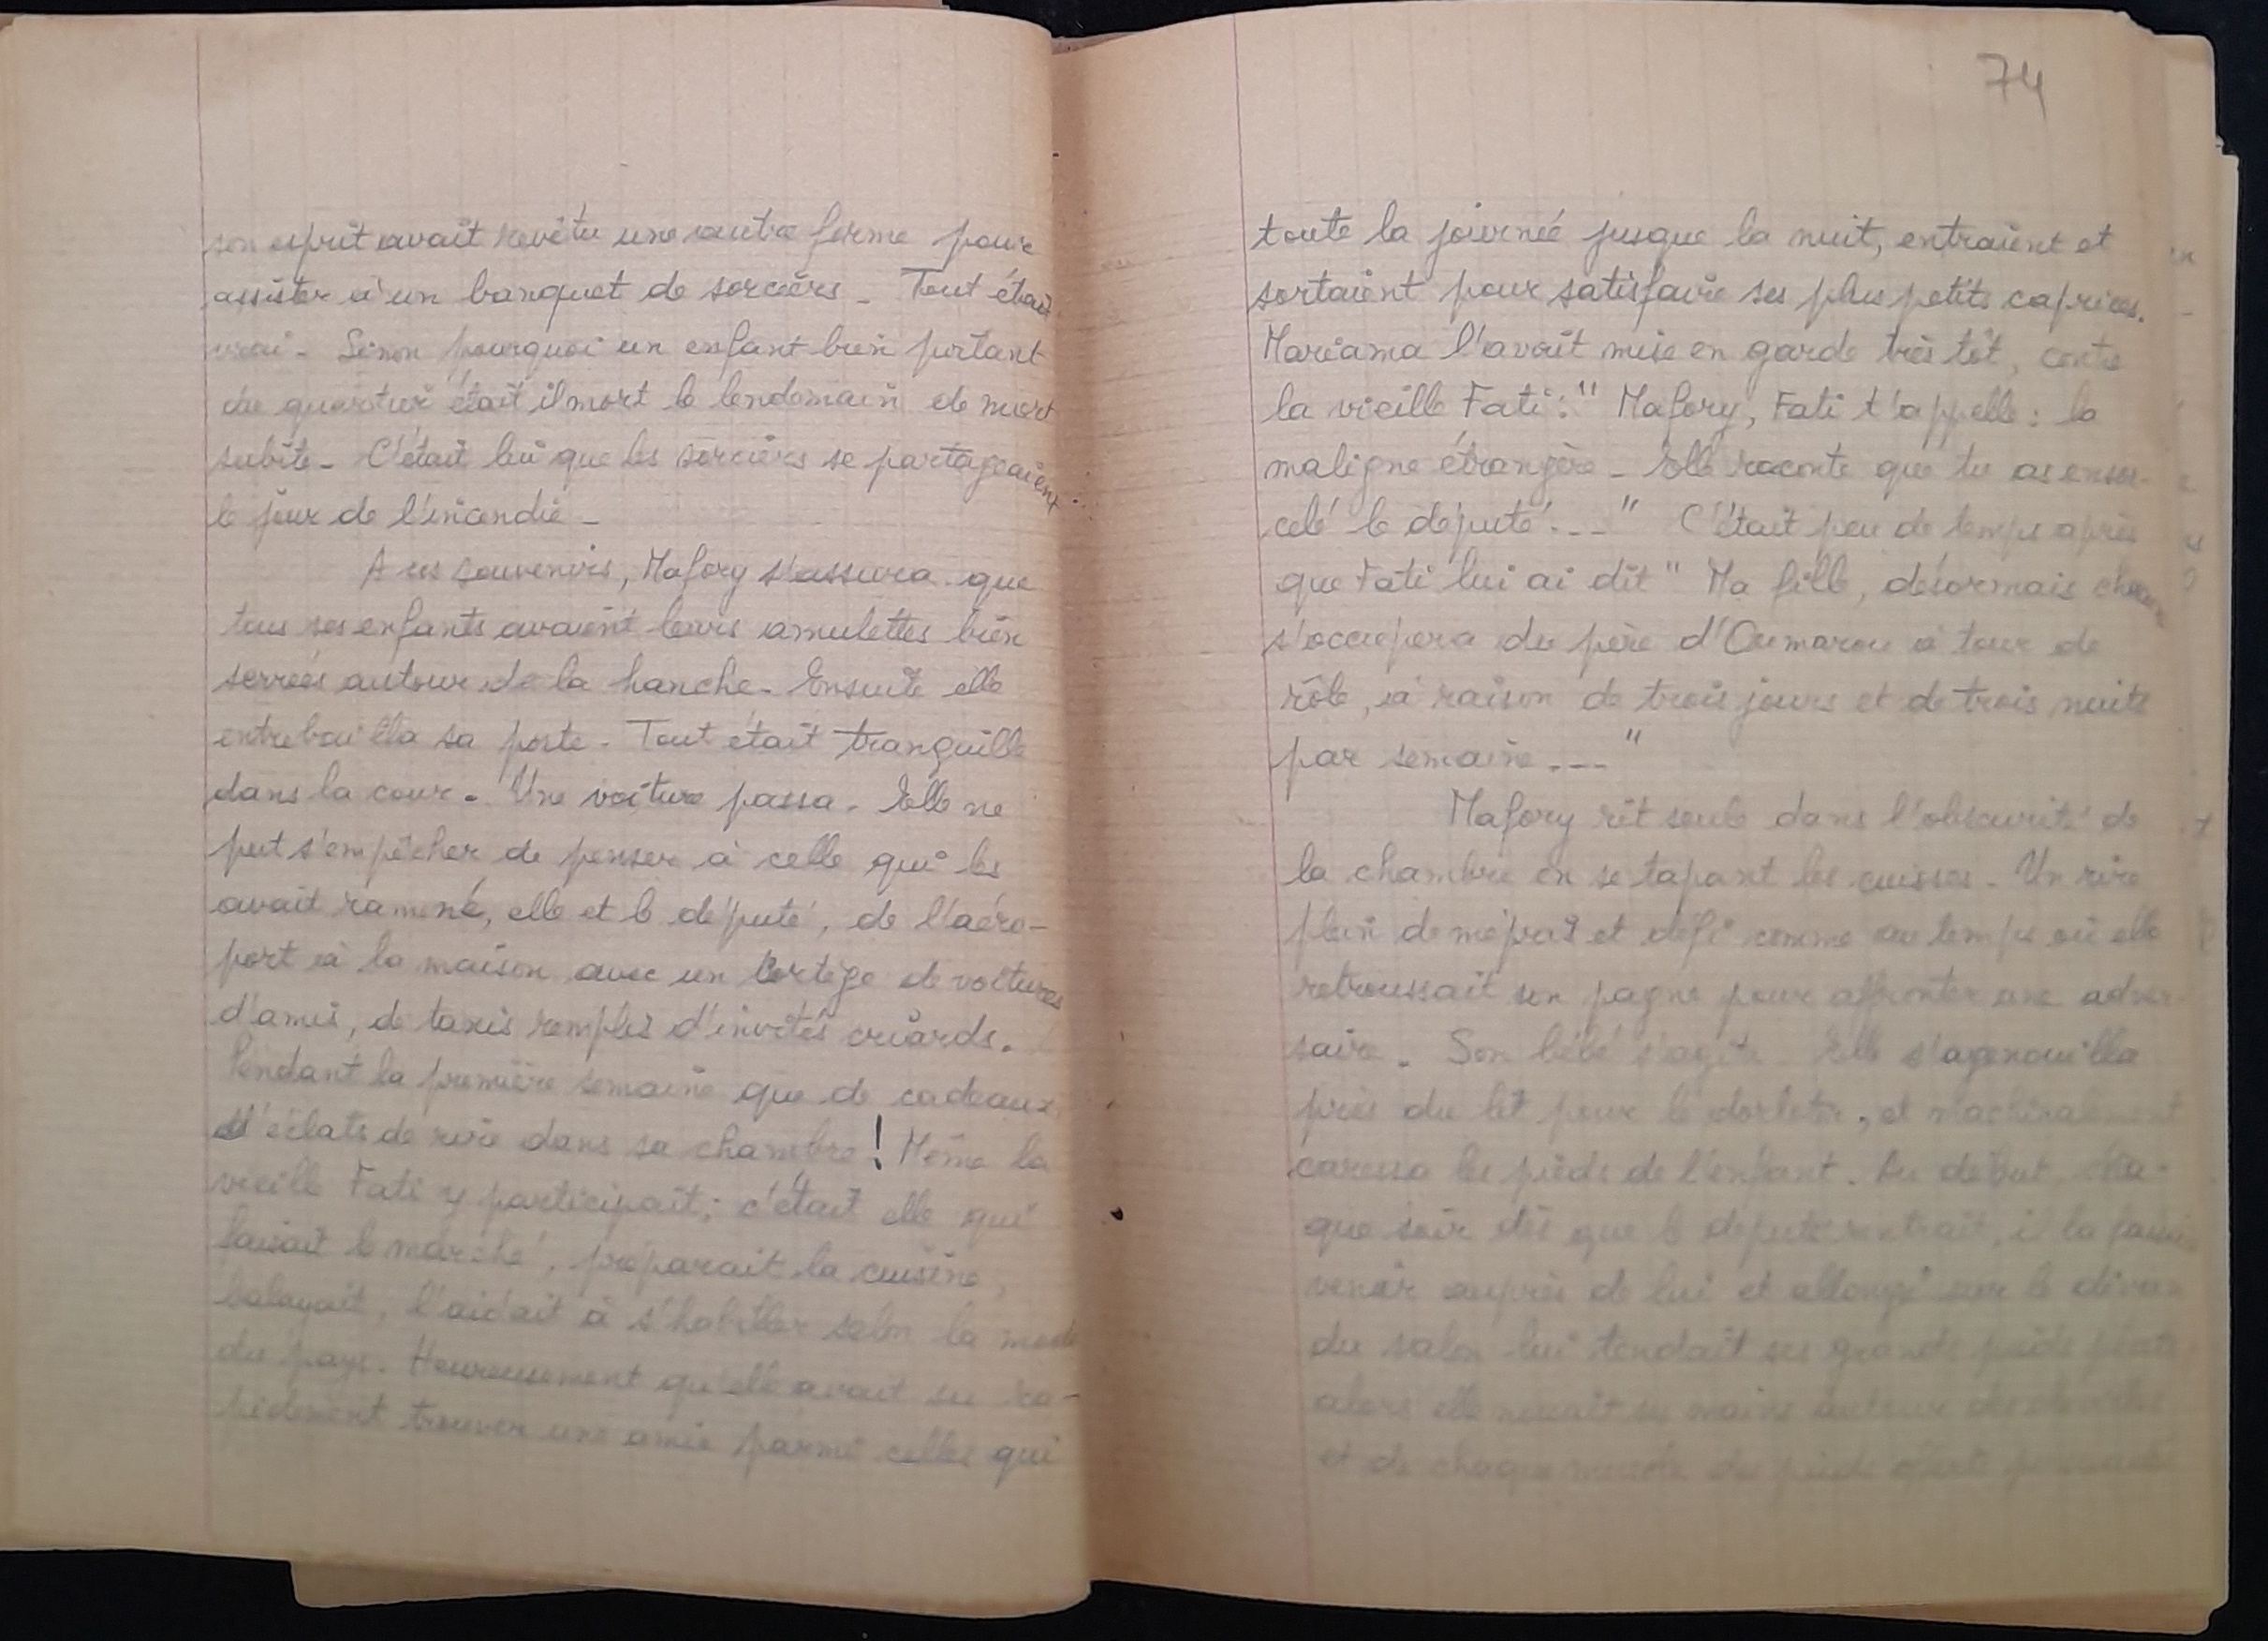 son esprit avait revêtu une autre forme pour
assister à un banquet de sorciers _ Tout était
vrai - Sinon pourquoi un enfant bien portant
du quartier était il mort le lendemain de mort
subite - C'était lui que les sorciers se partageaient
le jour de l'incendie -
A ces souvenirs, Mafory s'assura que
tous ses enfants avaient leurs amulettes bien
serrées autour de la hanche - Ensuite elle
entrebailla sa porte - Tout était tranquille
dans la cour - Une voiture passa - Elle ne
put s'empêcher de penser à celle qui les
avait ramené, elle et le député, de l'aéro-
port à la maison avec un cortège de voitures
d'amis, de taxis remplis d'invités criards.
Pendant la première semaine que de cadeaux,
d'éclats de rire dans sa chambre ! Même la
vieille Fati y participait ; c'était elle qui
faisait le marché, préparait la cuisine,
balayait, l'aidait à s'habiller selon la mode
du pays. Heureusement qu'elle avait su ra-
pidement trouver une amie parmi celles qui
74
toute la journée jusque la nuit, entraient et
sortaient pour satisfaire ses plus petits caprices.
Mariama l'avait mise en garde très tôt, contre
la vieille Fati : " Mafory, Fati t'appelle : la
maligne étrangère - Elle raconte que tu as ensor-
celé le député ... " C'était peu de temps après
que Fati lui ai dit " Ma fille, désormais chacune
s'occupera du père d'Oumarou à tour de
rôle, à raison de trois jours et de trois nuits
par semaine ... "
Mafory rit seule dans l'obscurité de
la chambre en se tapant les cuisses - Un rire
plein de mépris et défi comme au temps où elle
retroussait son pagne pour affronter une adver-
saire. Son bébé s'agita. Elle s'agenouilla
près du lit pour le dorloter, et machinalement
caressa les pieds de l'enfant. Au début, cha-
que soir dès que le député rentrait, il la faisait
venir auprès de lui et allongé sur le divan
du salon lui tendait ses grands pieds plats
alors elle nouait ses mains autour des chevilles
et de chaque muscle du pied